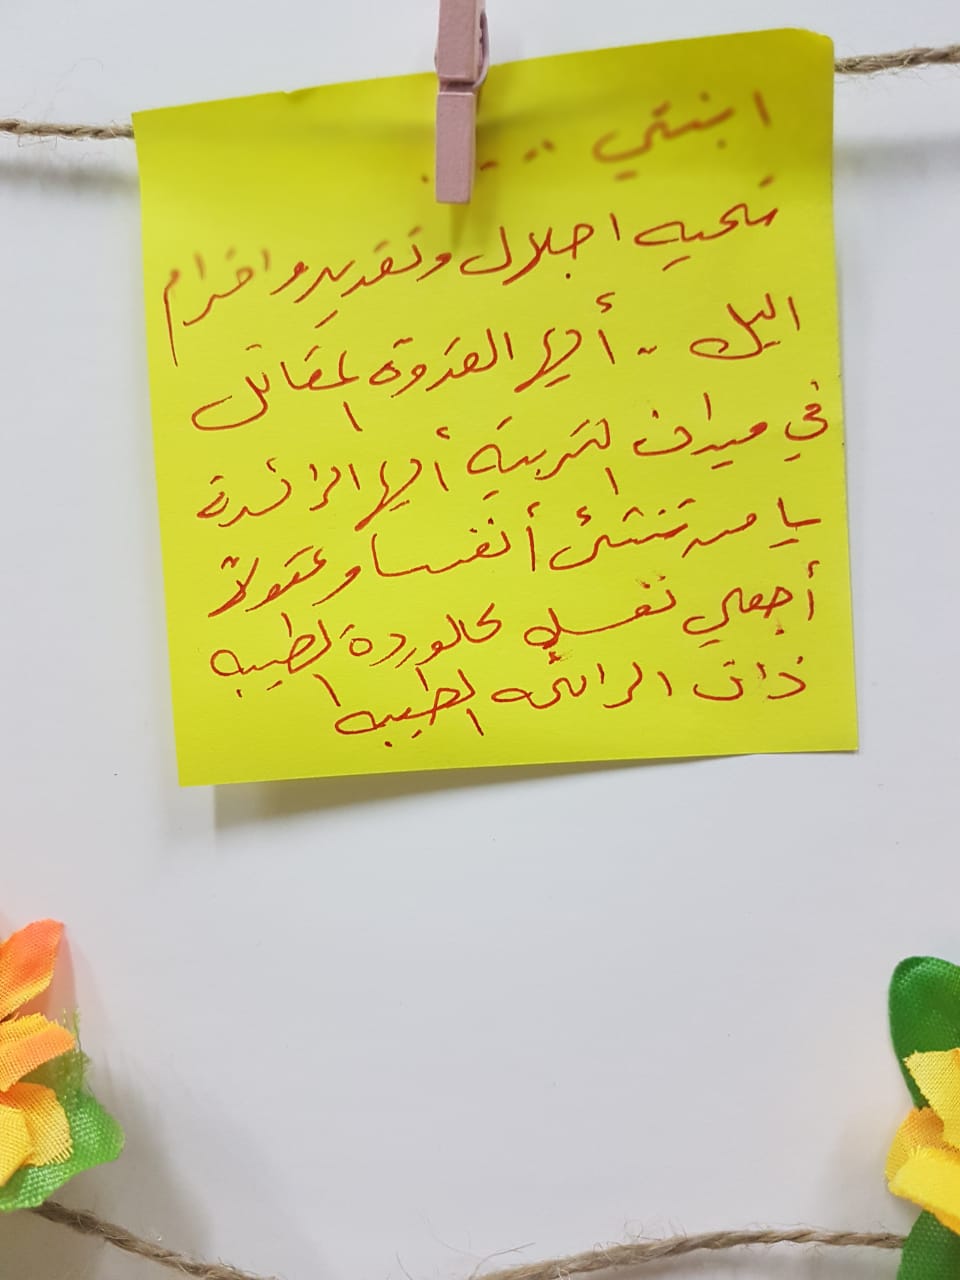 ابنتي ....
تحيه اجلال وتقدير واحترام
اليك .. أيها القدوة المقاتل
في ميدان التربية أيها الرائدة
يا من تنشئ أنفسا وعقولاً
أجعلي نفسك كالوردة الطيبه
ذات الرائحه الطيبه